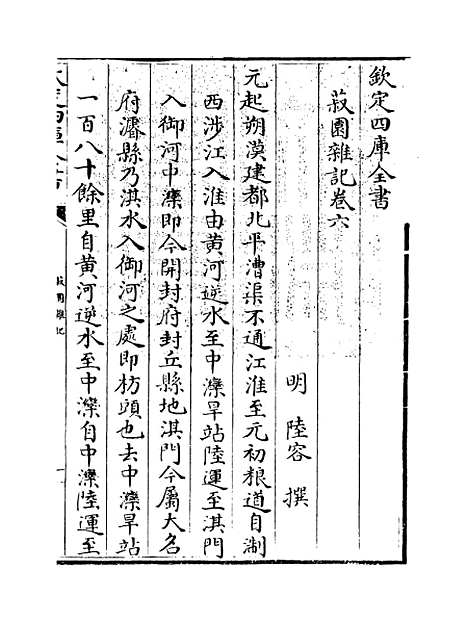 欽定四庫全書
菽園雜記卷六
明 陸容 撰
元起朔漠建都北平漕渠不通江淮至元初粮道自浙
西涉江入淮由黄河逆水至中灤旱站陸運至淇門
入御河中灤即今開封府封丘縣地淇門今屬大名
府濬縣乃淇水入御河之處即枋頭也去中灤旱站
一百八十餘里自黄河逆水至中灤自中灤陸運至
菽園雜記
一